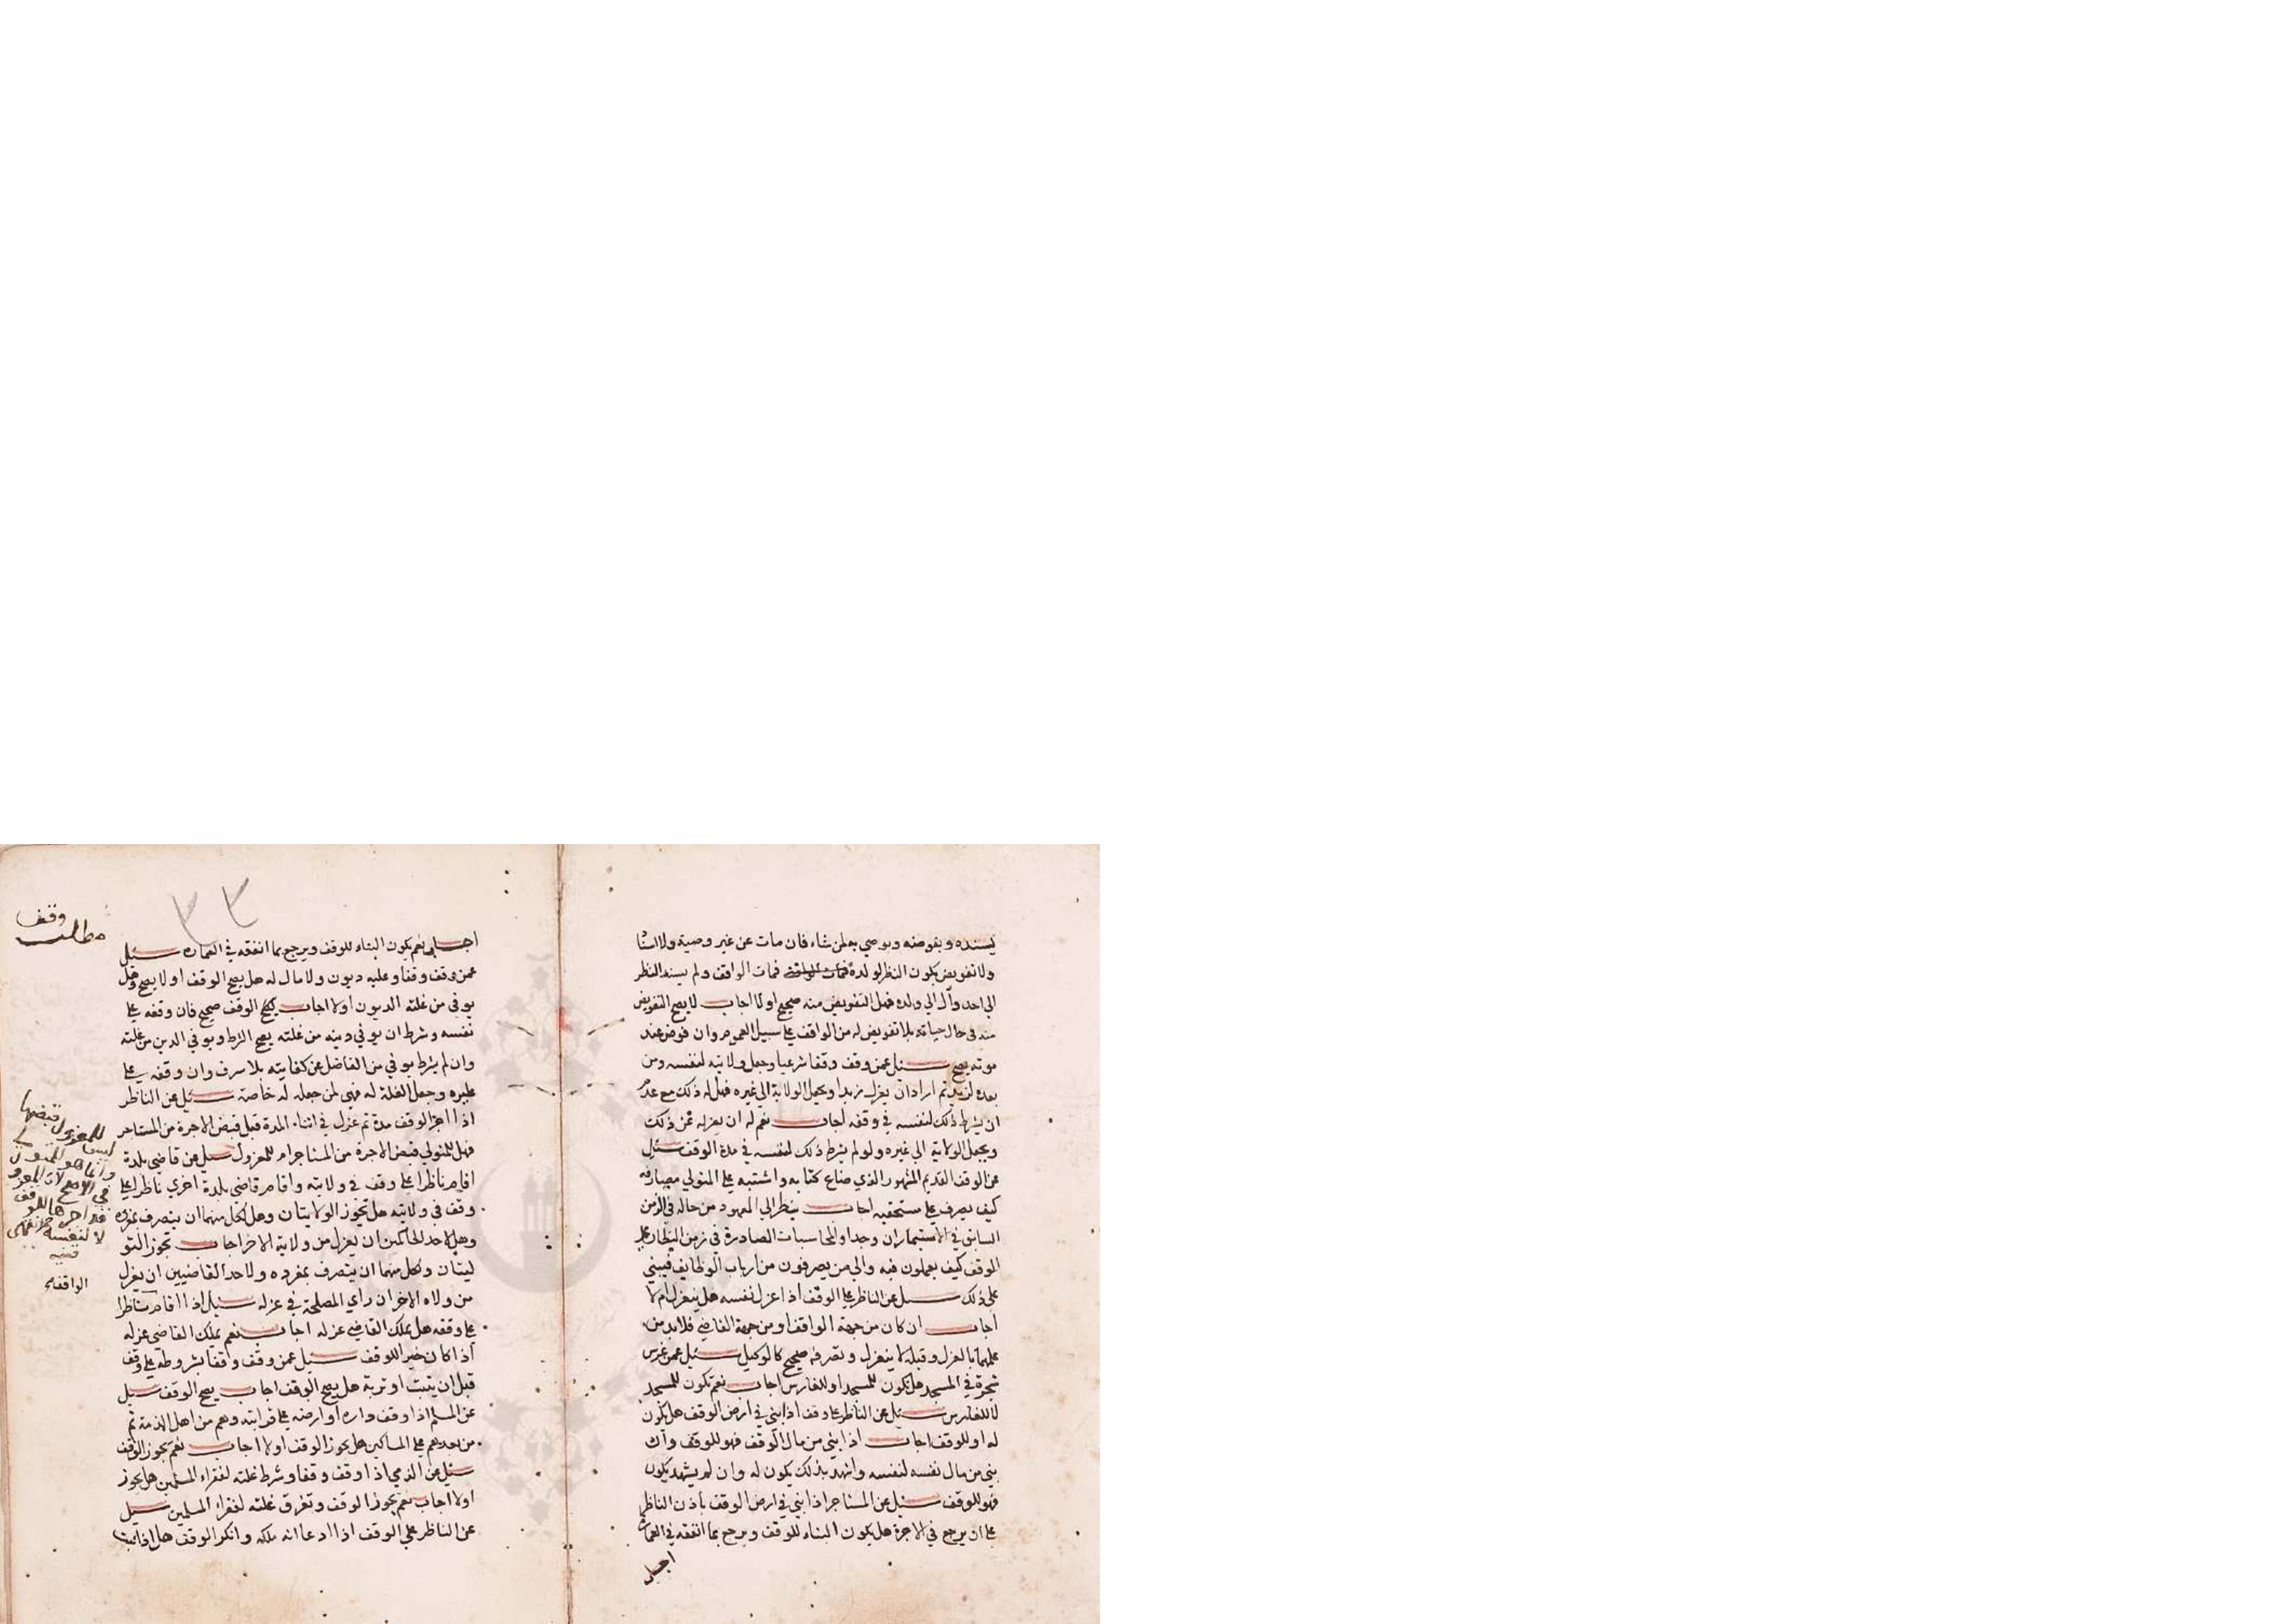 يسنده ويفوضه ويوصي به لمن شاء فان مات عن غير وصية ولا اسنا
ولا تفويض يكون النظر لولده فمات الواقف فمات الواقف ولم يسند النظر
الي احد وآل الي ولده فهل التفويض منه صحيح اولا اجاب لا يصح التفويض
منه في حال حياته بلا تفويض له من الواقف علي سبيل العموم وان فوض عند
موته يصح سئل عمن وقف وقفا شرعيا وجعل ولايته لنفسه ومن
بعده لزيد ثم اراد ان يعزل زيدا ويجعل الولاية الي غيره فهل له ذلك مع عدم
ان يشرط ذلك لنفسه في وقفه اجاب نعم له ان يعزله عن ذلك
ويجعل الولاية الي غيره ولو لم يشرط ذلك لنفسه في مدة الوقف سئل
عن الوقف القديم المشهور الذي ضاع كتابه واشتبه علي المتولي مصارفه
كيف يصرف علي مستحقيه اجاب ينظر الي المعهود من حاله في الزمن
السابق في الاستيمار ان وجد او المحاسبات الصادرة في زمن النظار علي
الوقف كيف يعملون فيه والي من يصرفون من ارباب الوظايف فيبني
علي ذلك سئل عن الناظر علي الوقف اذا عزل نفسه هل ينعزل ام لا
اجاب ان كان من جهة الواقف او من جهة القاضي فلابد من
علمهما بالعزل وقبله لا ينعزل وتصرفه صحيح كالوكيل سئل عمن غرس
شجرة في المسجد هل تكون للمسجد او للغارس اجاب نعم تكون للمسجد
لا للغارس سئل عن الناظر علي وقف اذا بني في ارض الوقف هل يكون
له او للوقف اجاب اذا بني من مال الوقف فهو للوقف وان
بني من مال نفسه لنفسه واشهد بذلك يكون له وان لم يشهد يكون
فهو للوقف سئل عن المستاجر اذا بني في ارض الوقف باذن الناظر
علي ان يرجع في الاجرة هل يكون البناء للوقف ويرجع بما انفقه في العمارة
اجاب
٣٣
وقف
مطلب
اجاب نعم يكون البناء للوقف ويرجع بما انفقه في العماره سئل
عمن وقف وقفا وعليه ديون ولا مال له هل يصح الوقف اولا يصح وهل
يوفي من غلته الديون اولا اجاب الوقف صحيح فان وقفه علي
نفسه وشرط ان يوفي دينه من غلته يصح الشرط ويوفي الدين من غلته
وان لم يشرط يوفي من الفاضل عن كفايته بلا سرف وان وقفه علي
غيره وجعل الغلة له فهي لمن جعله له خاصة سئل عن الناظر
اذا اجر الوقف مدة ثم عزل في اثناء المدة قبل قبض الاجرة من المستاجر
فهل للمتولي قبض الاجرة من المستاجر ام للمعزول سئل عن قاضي بلدة
اقام ناظرا علي وقف في ولايته واقام قاضي بلدة اخري ناظرا علي
وقف في ولايته هل تجوز الولايتان وهل لكل منهما ان يتصرف بمفرده
وهل لاحد الحاكمين ان يعزل من ولاية الاخر اجاب تجوز التو
ليتان ولكل منهما ان يتصرف بمفرده ولاحد القاضيين ان يعزل
من ولاه الاخر ان راي المصلحة في عزله سئل اذا اقام ناظرا
علي وقفه هل يملك القاضي عزله اجاب نعم يملك القاضي عزله
اذا كان خيرا للوقف سئل عمن وقف وقفا بشروطه علي وقف
قبل ان يثبت او تربة هل يصح الوقف اجاب يصح الوقف سئل
عن المسلم اذا وقف داره او ارضه علي قرابته وهم من اهل الذمة ثم
من بعدهم علي المساكين هل يجوز الوقف اولا اجاب نعم يجوز الوقف
سئل عن الذمي اذا وقف وقفا وشرط غلته لفقراء المسلمين هل يجوز
اولا اجاب نعم يجوز الوقف وتفرق غلته لفقراء المسلمين سئل
عن الناظر علي الوقف اذا ادعا انه ملكه وانكر الوقف هل اذا ثبت
ليس للمعزول قبضها
وانما هو للمتولي
في الاصح لان المعزول
اجرها للوقف
لا لنفسه
قنيه
الواقفه